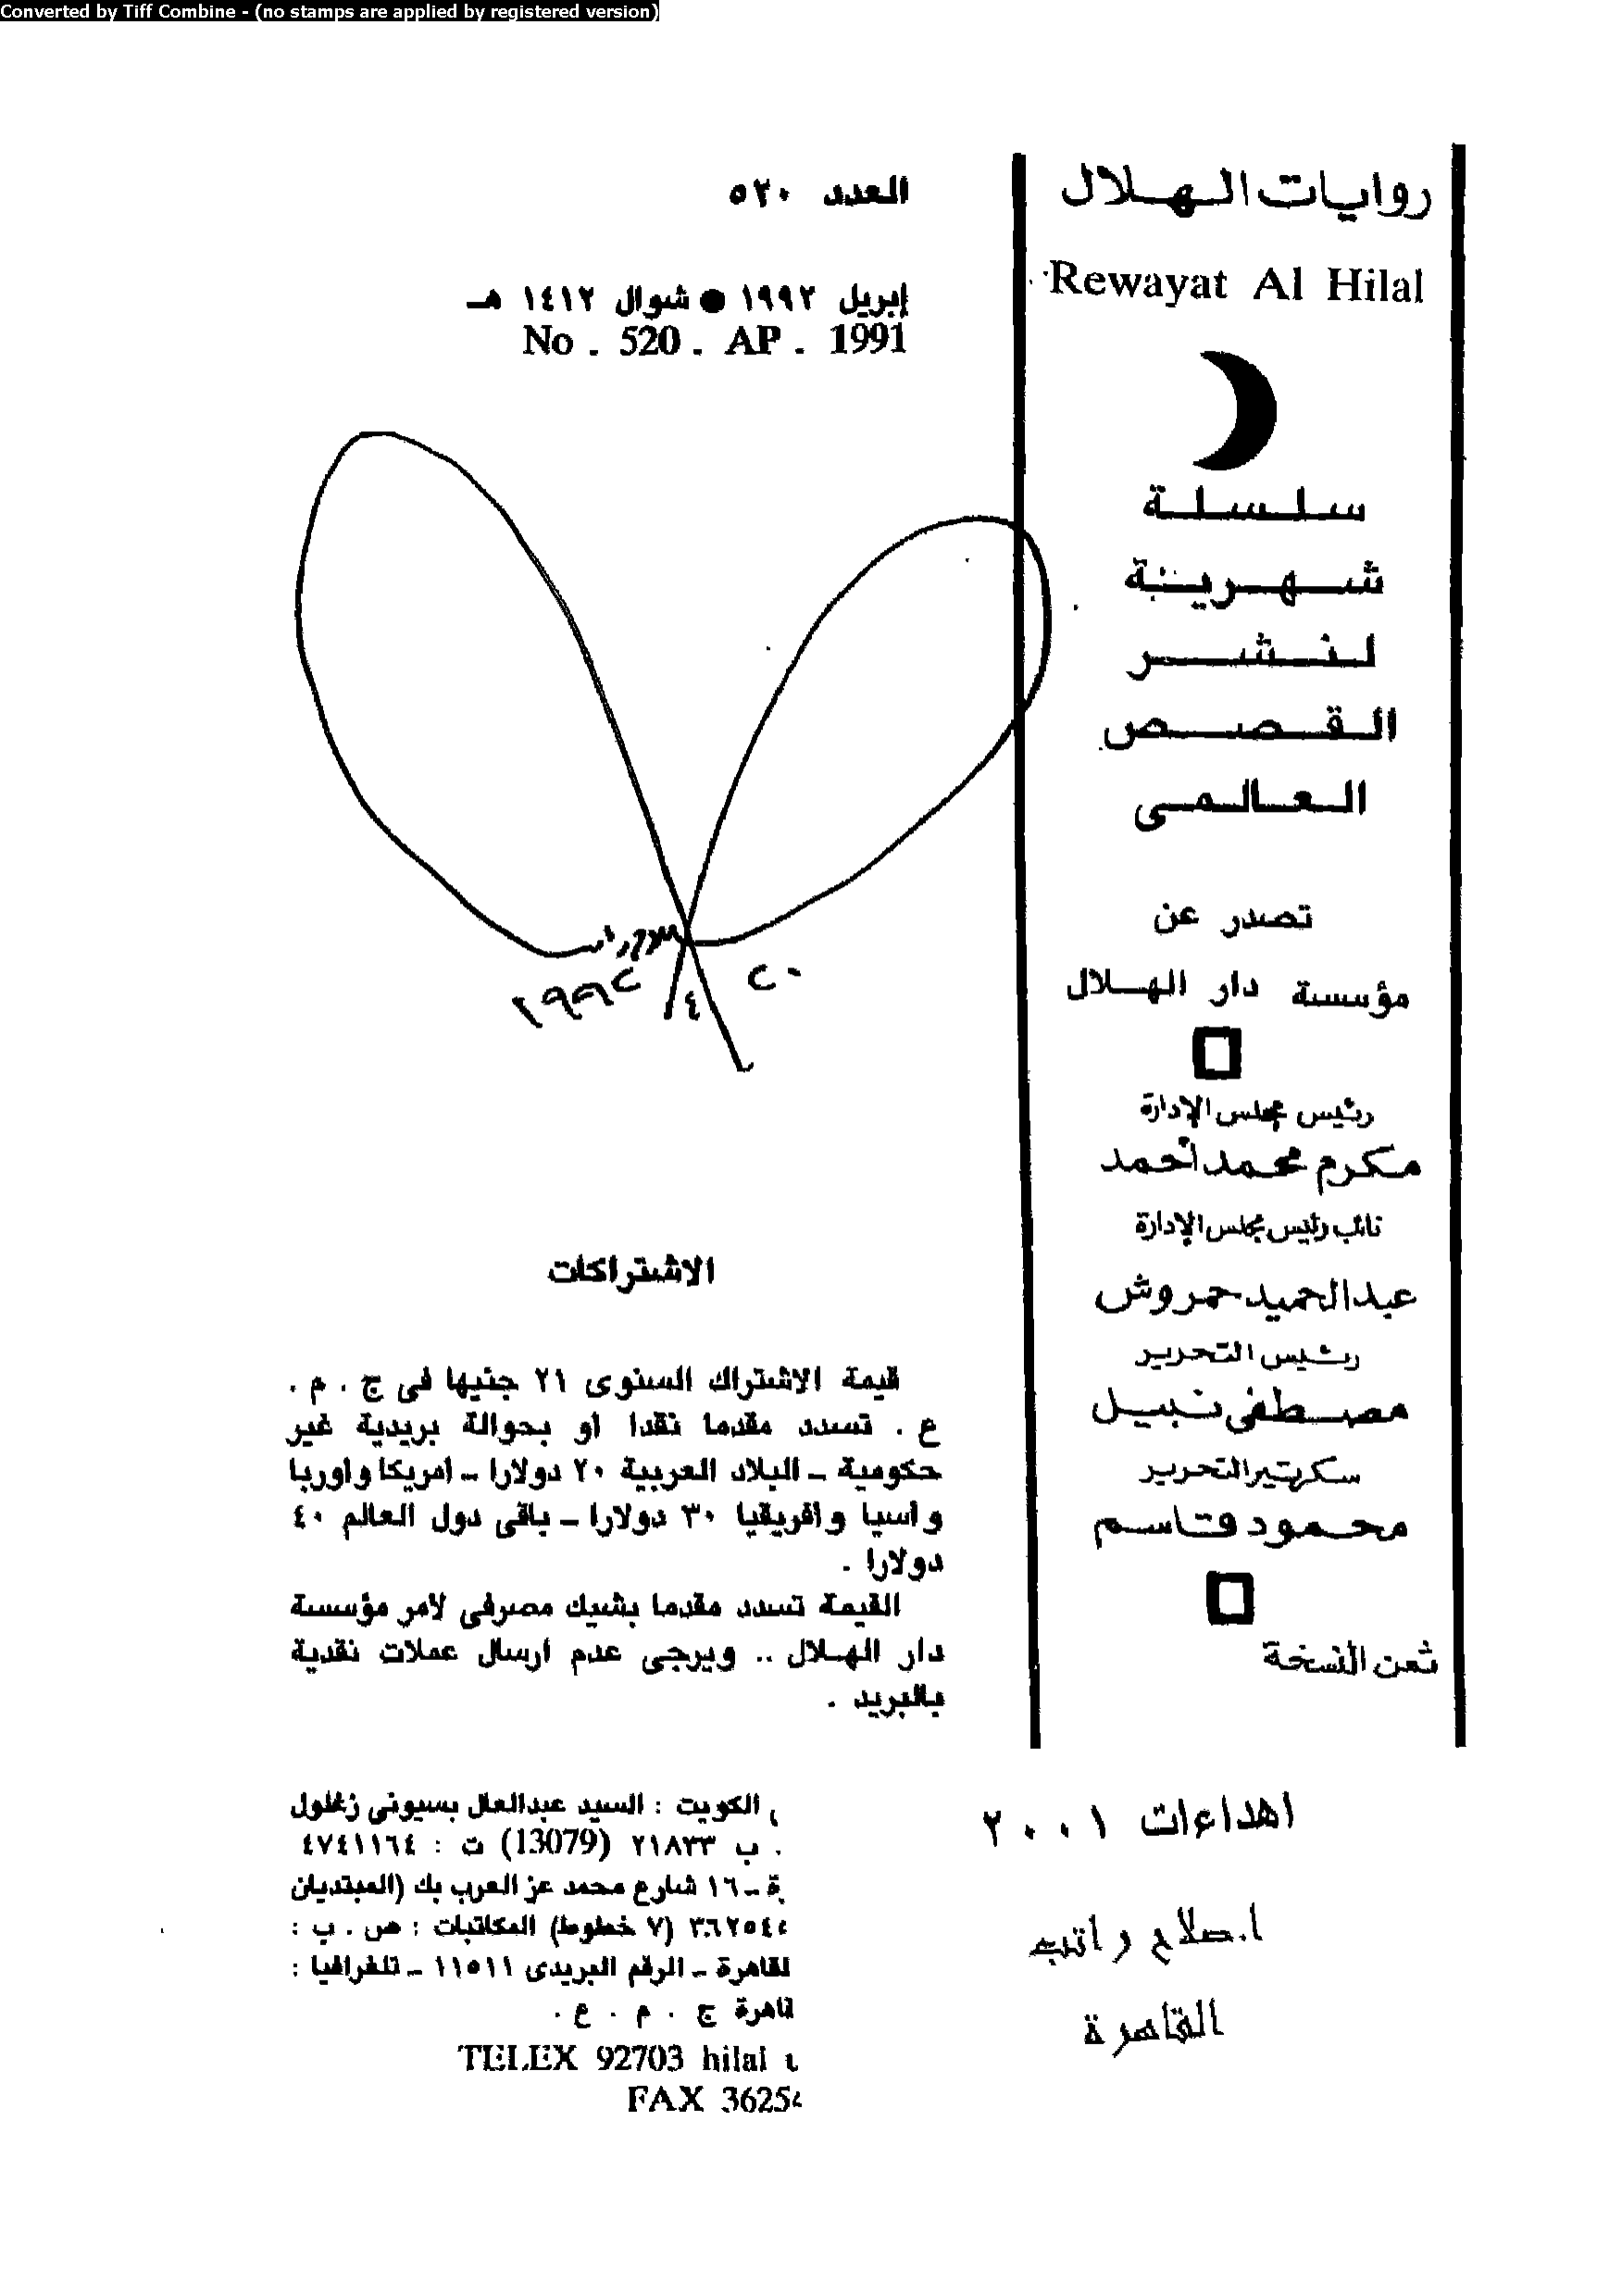 Converted by Tiff Combine - (no stamps are applied by registered version)
روايات الهلال
Rewayat Al Hilal
سلسلة
شهرية
لنشر
القصص
العالمى
تصدر عن
مؤسسة دار الهلال
رئيس مجلس الإدارة
مكرم محمد أحمد
نائب رئيس مجلس الإدارة
عبد الحميد حمروش
رئيس التحرير
مصطفى نبيل
سكرتير التحرير
محمود قاسم
ثمن النسخة
العدد ٥٢٠
إبريل ١٩٩٢ ● شوال ١٤١٢ هـ
No . 520 . AP . 1991
٢٠
٤
١٩٩٢
الاشتراكات
قيمة الاشتراك السنوى ٢١ جنيها فى ج . م .
ع . تسدد مقدما نقدا او بحوالة بريدية غير
حكومية - البلاد العربية ٢٠ دولارا - امريكا واوربا
واسيا وافريقيا ٣٠ دولارا - باقى دول العالم ٤٠
دولارا .
القيمة تسدد مقدما بشيك مصرفى لامر مؤسسة
دار الهلال .. ويرجى عدم ارسال عملات نقدية
بالبريد .
الكويت : السيد عبدالعال بسيونى زغلول
. ب ٢١٨٣٣ (13079) ت : ٤٧٤١١٦٤
ة - ١٦ شارع محمد عز العرب بك (المبتديان
٣٦٢٥٤٥ (٧ خطوط) المكاتبات : ص . ب :
لقاهرة - الرقم البريدى ١١٥١١ - تلغرافيا :
قاهرة ج . م . ع .
TELEX 92703 hilal
FAX 3625
اهداءات ٢٠٠١
ا.صلاح راتب
القاهرة